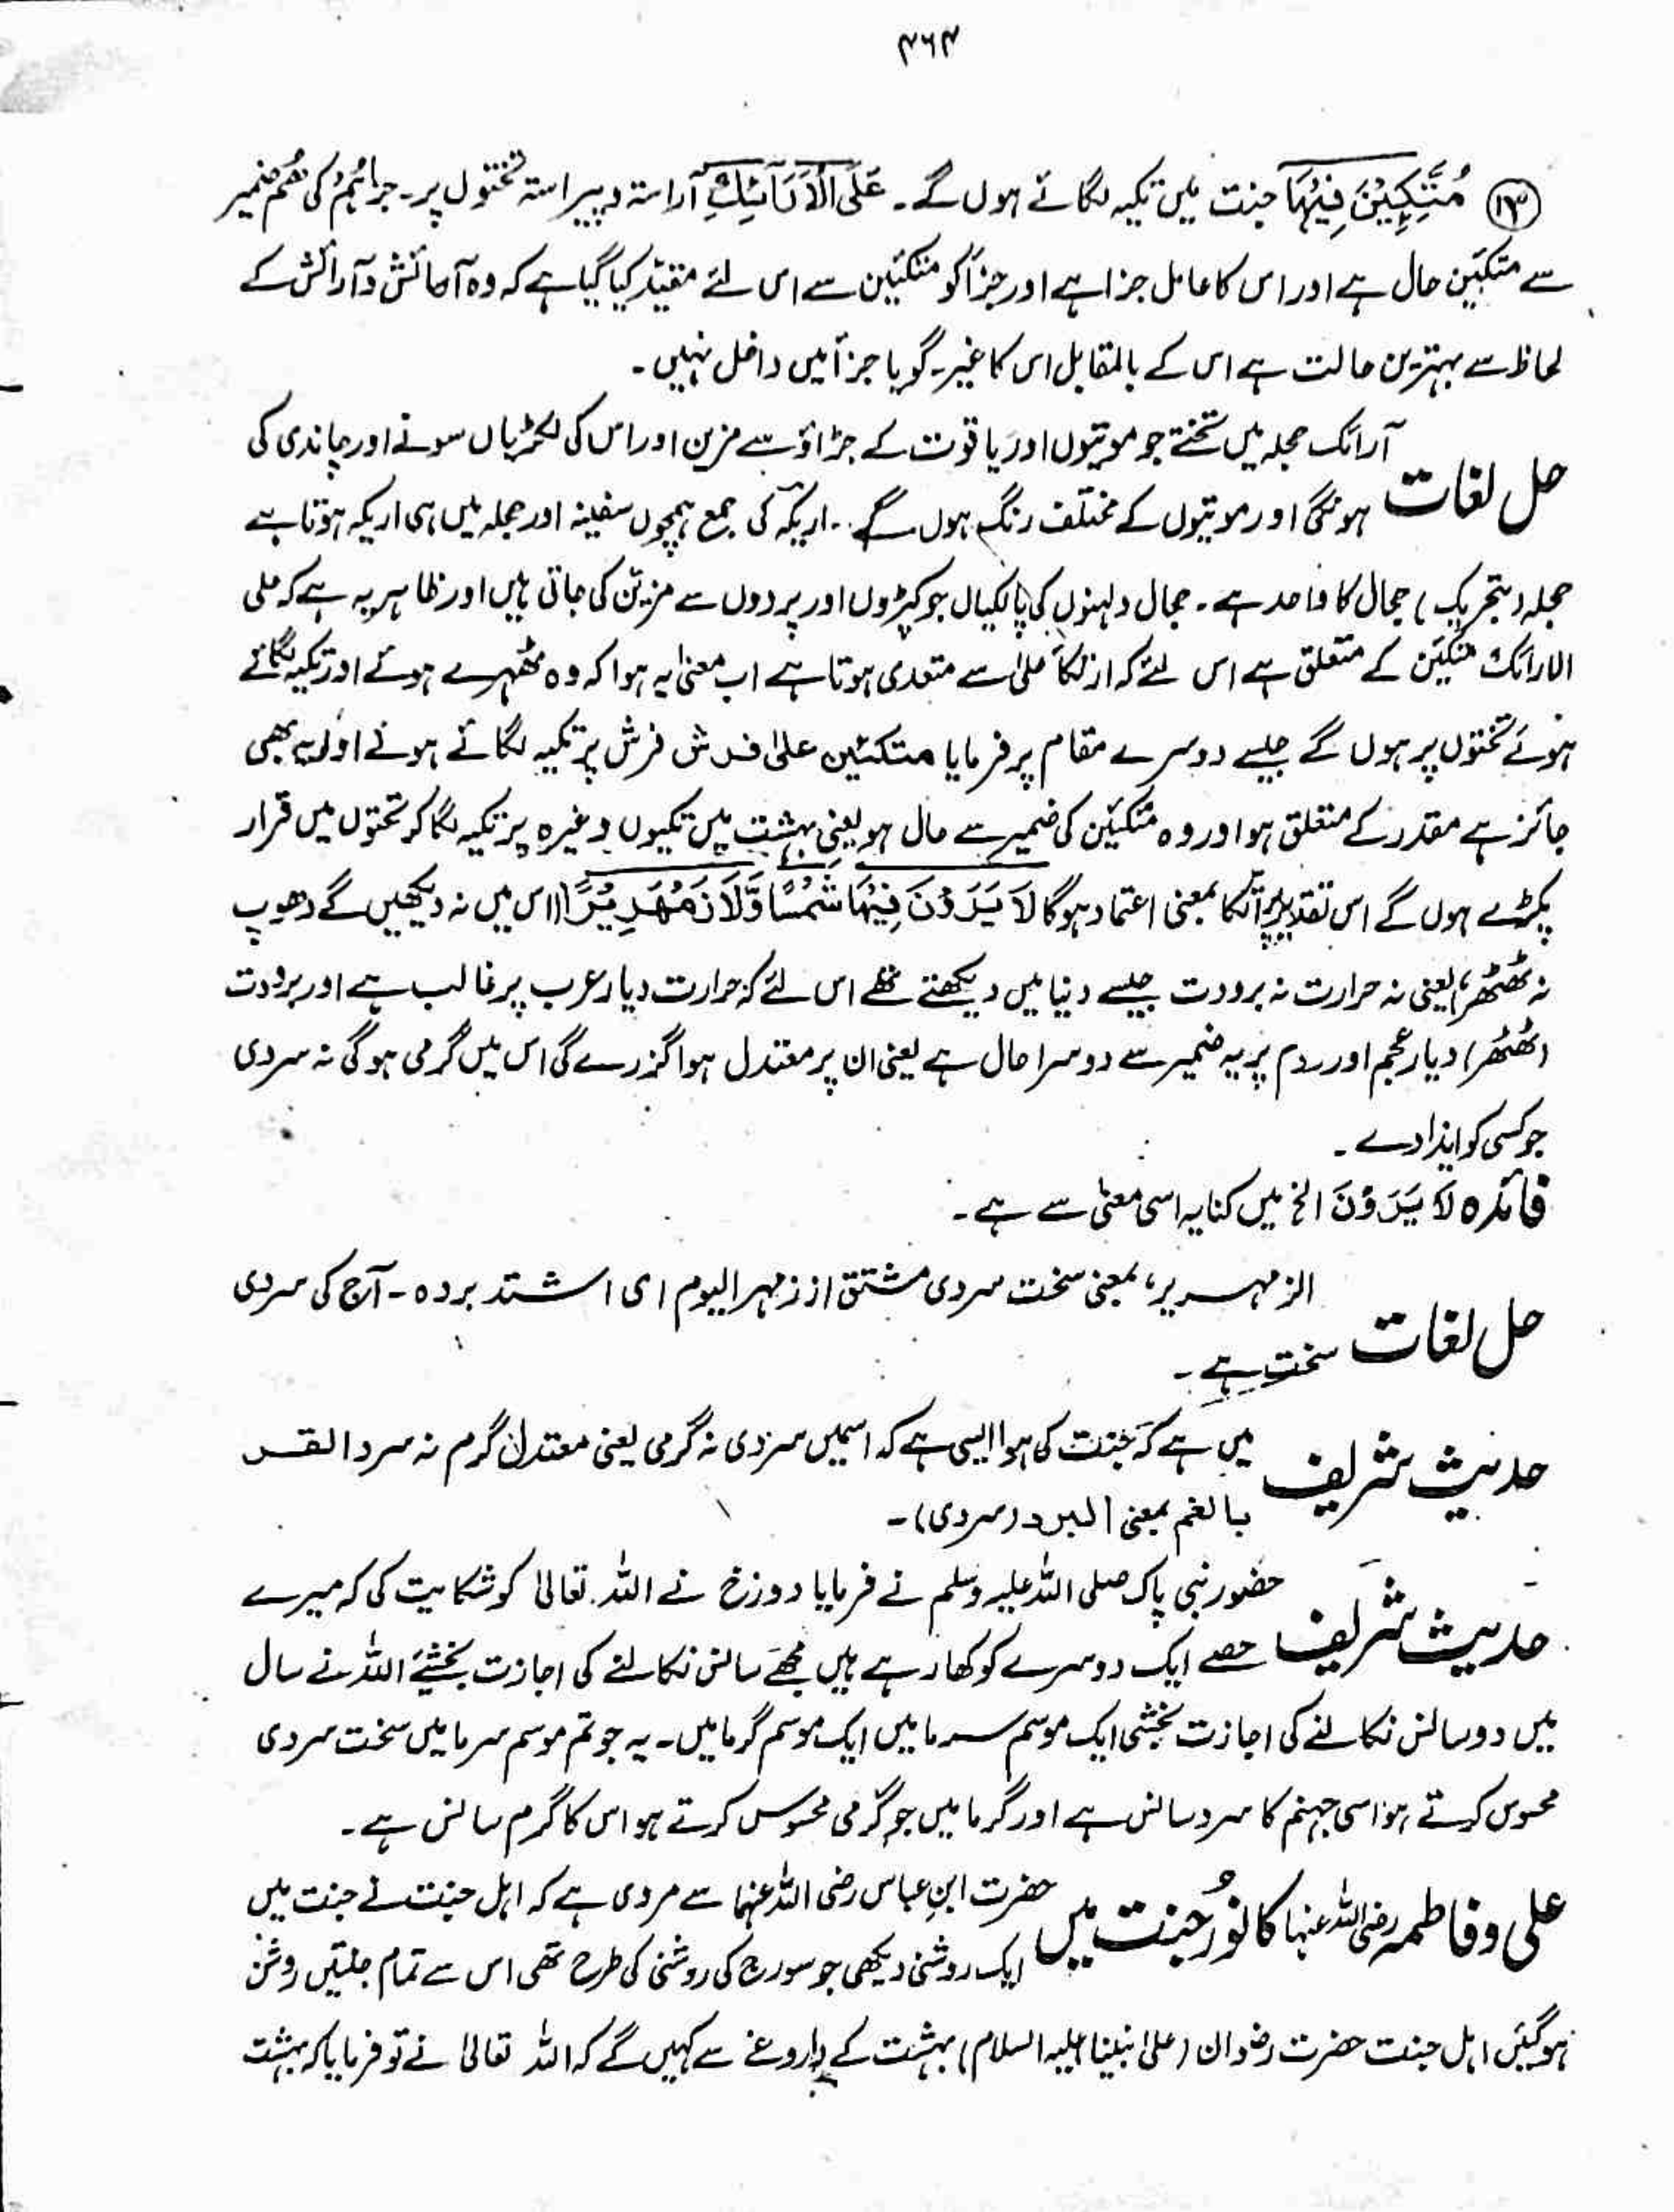 ۴۶۴
⑬ مُتَّكِـِٕيْنَ فِيْهَا جنت میں تکیہ لگائے ہوں گے۔ عَلَى الْاَرَآئِكِ آراستہ وپیراستہ تختوں پر۔ جزاہُمْ کی ھُم ضمیر
سے متکئین حال ہے اور اس کا عامل جزا ہے اور جزأ کو متکئین سے اس لئے مقیّد کیا گیا ہے کہ وہ آسائش وآرائش کے
لحاظ سے بہترین حالت ہے اس کے بالمقابل اس کا غیر۔ گویا جزأ میں داخل نہیں۔
آرائک حجلہ میں تختے جو موتیوں اور یاقوت کے جڑاؤ سے مزین اور اس کی لکڑیاں سونے اور چاندی کی
حل لغات ہونگی اور موتیوں کے مختلف رنگ ہوں گے۔ اریکہ کی جمع ہمچوں سفینہ اور حجلہ میں ہی اریکہ ہوتا ہے
حجلہ (بتحریک) حجال کا واحد ہے۔ حجال دلہنوں کی پالکیاں جو کپڑوں اور پردوں سے مزیّن کی جاتی ہیں اور ظاہر یہ ہے کہ علی
الارائک متکئین کے متعلق ہے اس لئے کہ اتکأ علیٰ سے متعدی ہوتا ہے اب معنیٰ یہ ہوا کہ وہ ٹھہرے ہوئے اور تکیہ لگائے
ہوئے تختوں پر ہوں گے جیسے دوسرے مقام پر فرمایا متکئین علیٰ فرش فرش پر تکیہ لگائے ہوئے اور یہ بھی
جائز ہے مقدر کے متعلق ہو اور وہ متکئین کی ضمیر سے حال ہو یعنی بہشت میں تکیوں وغیرہ پر تکیہ لگا کر تختوں میں قرار
پکڑے ہوں گے اس تقدیر پر اتکا بمعنی اعتماد ہوگا لَا يَرَوْنَ فِيْهَا شَمْسًا وَّلَا زَمْهَرِيْرًا (اس میں نہ دیکھیں گے دھوپ
نہ ٹھٹھر) یعنی نہ حرارت نہ برودت جیسے دنیا میں دیکھتے تھے اس لئے کہ حرارت دیار عرب پر غالب ہے اور برودت
(ٹھٹھر) دیار عجم اور روم پر یہ ضمیر سے دوسرا حال ہے یعنی ان پر معتدل ہوا گزرے گی اس میں گرمی ہوگی نہ سردی
جو کسی کو ایذا دے۔
فائدہ لَا يَرَوْنَ الخ میں کنایہ اسی معنیٰ سے ہے۔
الزمہریر، بمعنی سخت سردی مشتق از زمہر الیوم ای اشتد بردہ۔ آج کی سردی
حل لغات سخت ہے۔
حدیث شریف میں ہے کہ جنت کی ہوا ایسی ہے کہ اسمیں سردی نہ گرمی یعنی معتدل گرم نہ سرد القر
بالضم بمعنی البرد (سردی)۔
حضور نبی پاک صلی اللہ علیہ وسلم نے فرمایا دوزخ نے اللہ تعالیٰ کو شکایت کی کہ میرے
حدیث شریف حصے ایک دوسرے کو کھا رہے ہیں مجھے سانس نکالنے کی اجازت بخشئے اللہ نے سال
میں دو سانس نکالنے کی اجازت بخشی ایک موسم سرما میں ایک موسم گرما میں۔ یہ جو تم موسم سرما میں سخت سردی
محسوس کرتے ہو اسی جہنم کا سرد سانس ہے اور گرما میں جو گرمی محسوس کرتے ہو اس کا گرم سانس ہے۔
علی وفاطمہ رضی اللہ عنہا کا نُور جنت میں حضرت ابنِ عباس رضی اللہ عنہما سے مروی ہے کہ اہل جنت نے جنت میں
ایک روشنی دیکھی جو سورج کی روشنی کی طرح تھی اس سے تمام جنتیں روشن
ہوگئیں اہل جنت حضرت رضوان (علیٰ نبینا علیہ السلام) بہشت کے داروغے سے کہیں گے کہ اللہ تعالیٰ نے تو فرمایا کہ بہشت